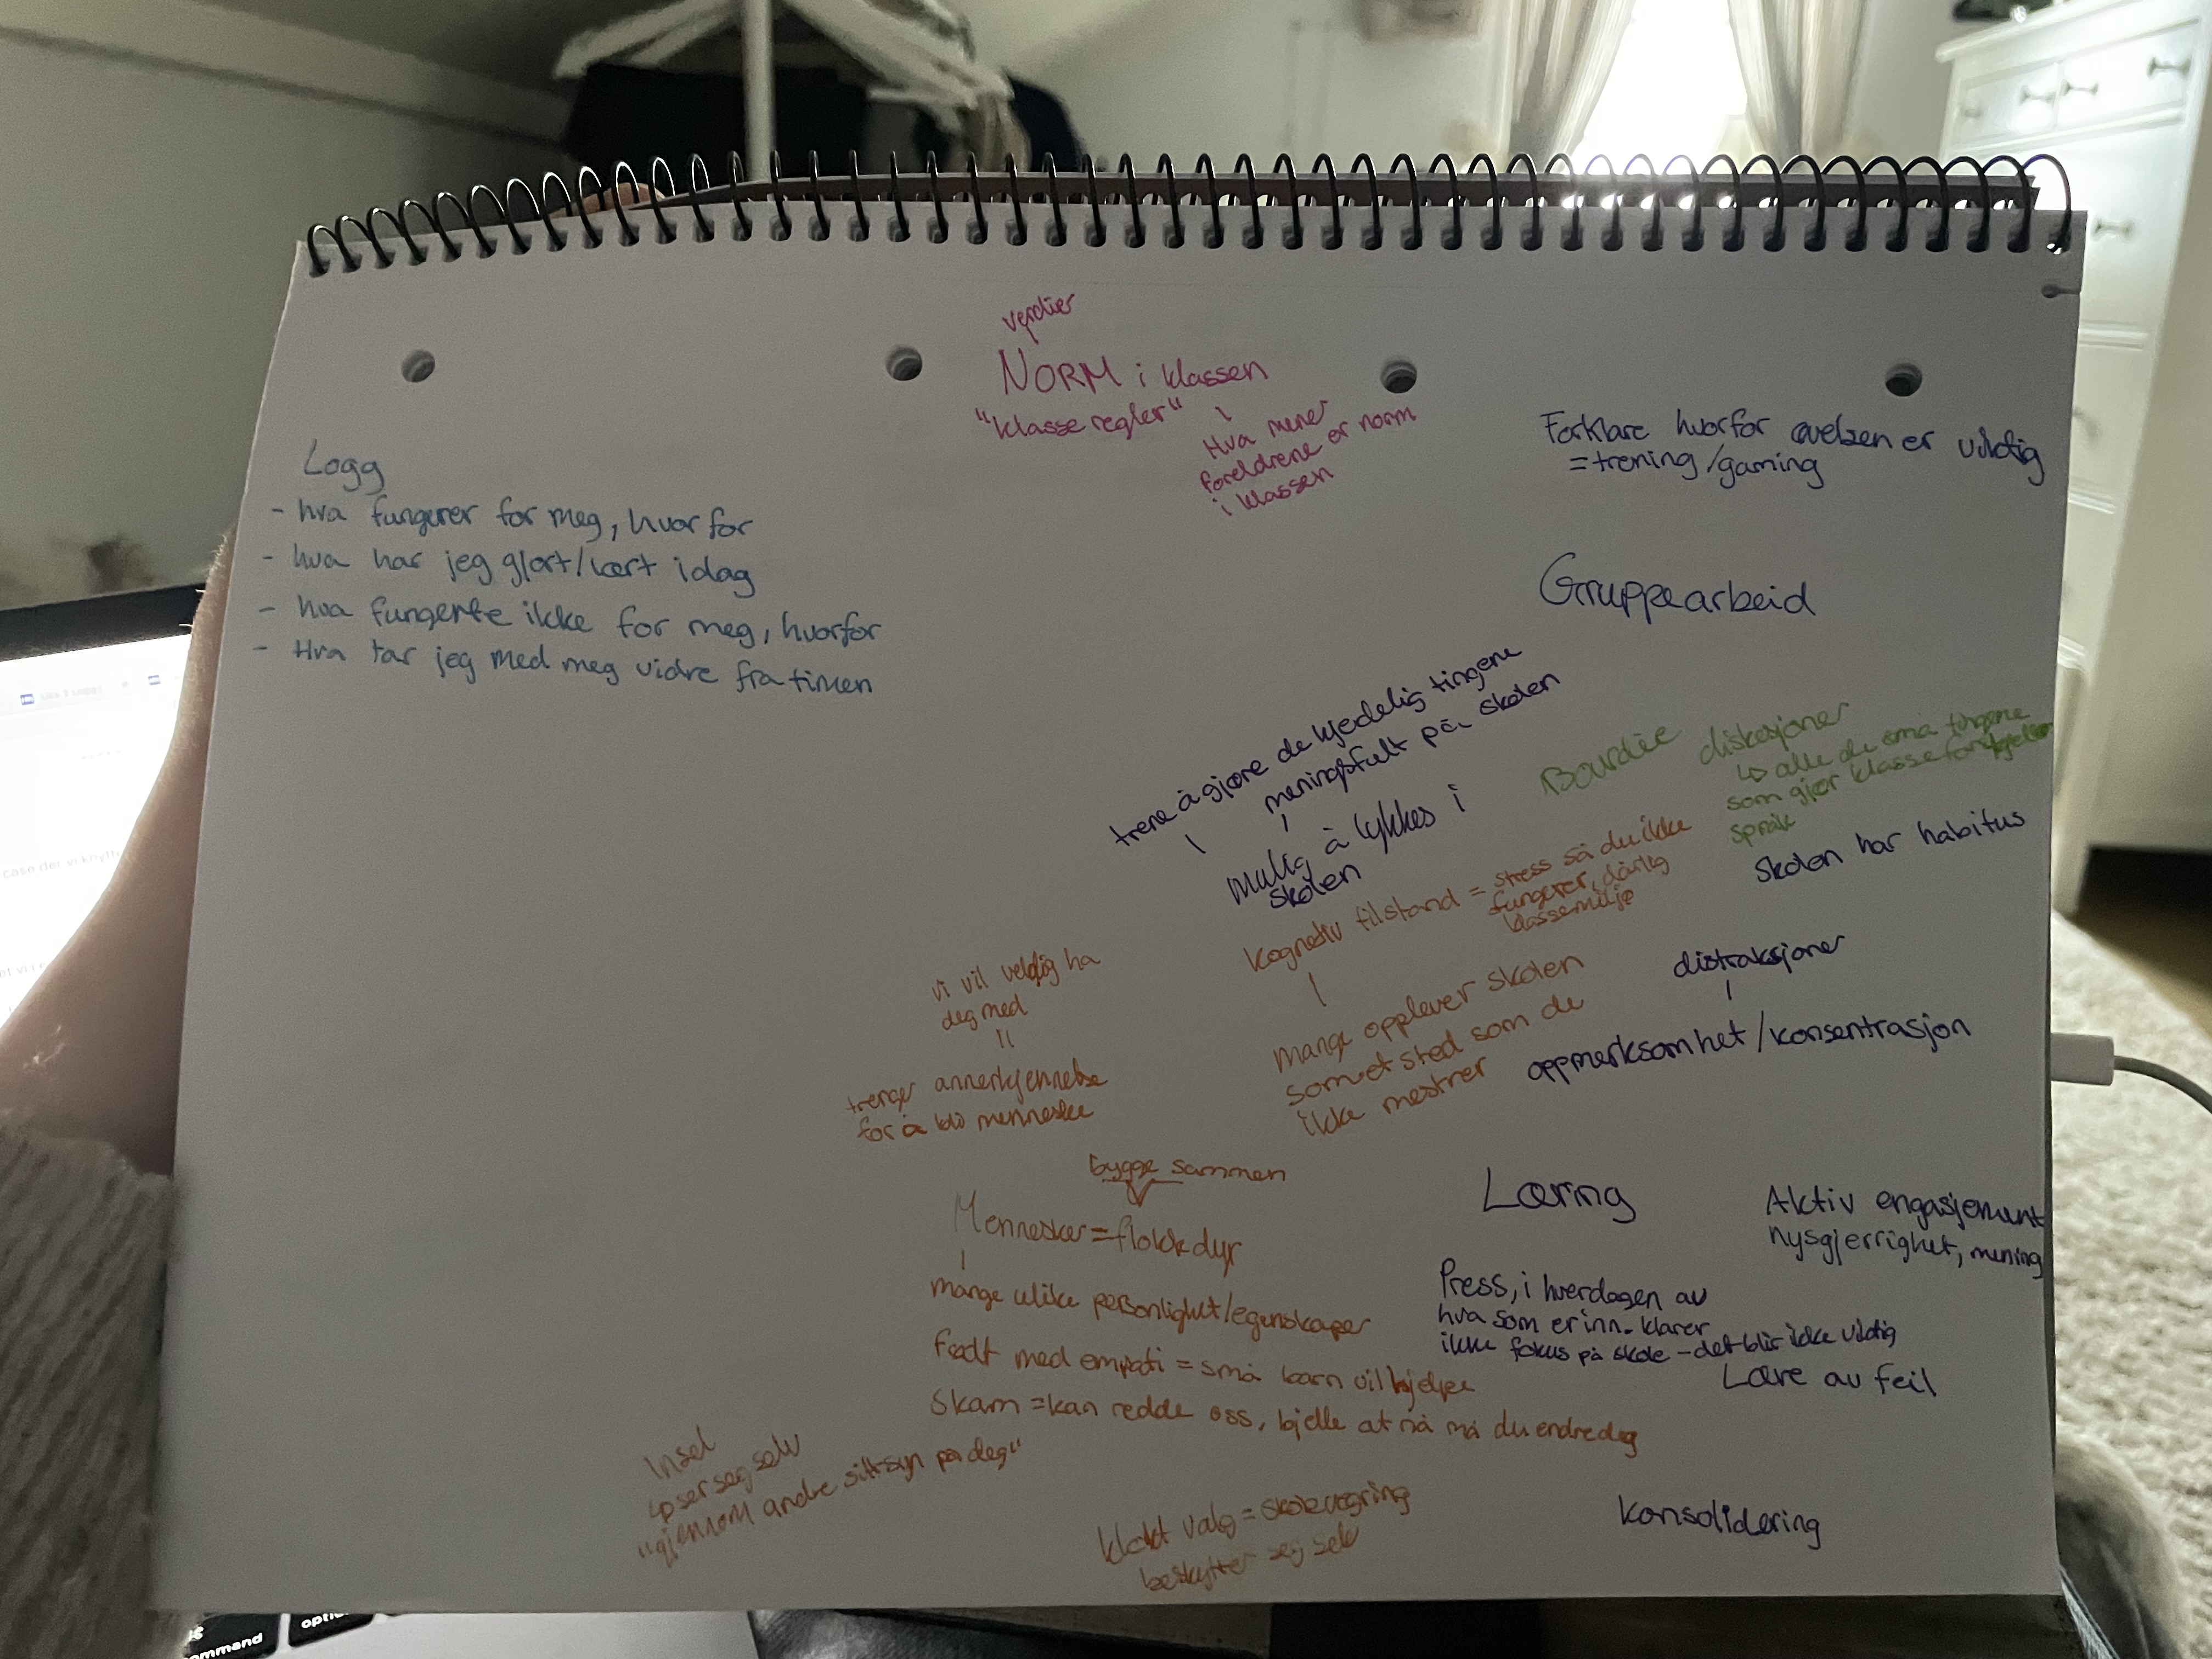 verdier
NORM i klassen
"klasse regler"
Hva mener
foreldrene er norm
i klassen
Logg
- hva fungerer for meg, hvorfor
- hva har jeg gjort/lært idag
- hva fungerte ikke for meg, hvorfor
- Hva tar jeg med meg vidre fra timen
Forklare hvorfor øvelsen er viktig
= trening/gaming
Gruppearbeid
trene å gjøre de kjedelig tingene
meningsfult på skolen
mulig å lykkes i
skolen
Bourdie diskosjoner
↳ alle de små tingene
som gjør klasse
språk
skolen har habitus
Kognetiv tilstand = stress så du ikke
fungerer, dårlig
klassemiljø
mange opplever skolen
som et sted som de
ikke mestrer
distraksjoner
oppmerksomhet/konsentrasjon
vi vil veldig ha
deg med
=
trenger annerkjennelse
for å bli menneske
bygge sammen
Mennesker = flokkdyr
mange ulike personlighet/egenskaper
Født med empati = små barn vil hjelpe
Skam = kan redde oss, bjelle at nå må du endre deg
Insel
↳ ser seg selv
"gjennom andre sitt syn på deg"
klokt valg = skolevegring
beskytter seg selv
Læring
Aktiv engasjement
nysgjerrighet, mening
Press, i hverdagen av
hva som er inn. klarer
ikke fokus på skole - det blir ikke viktig
Lære av feil
Konsolidering
command
option